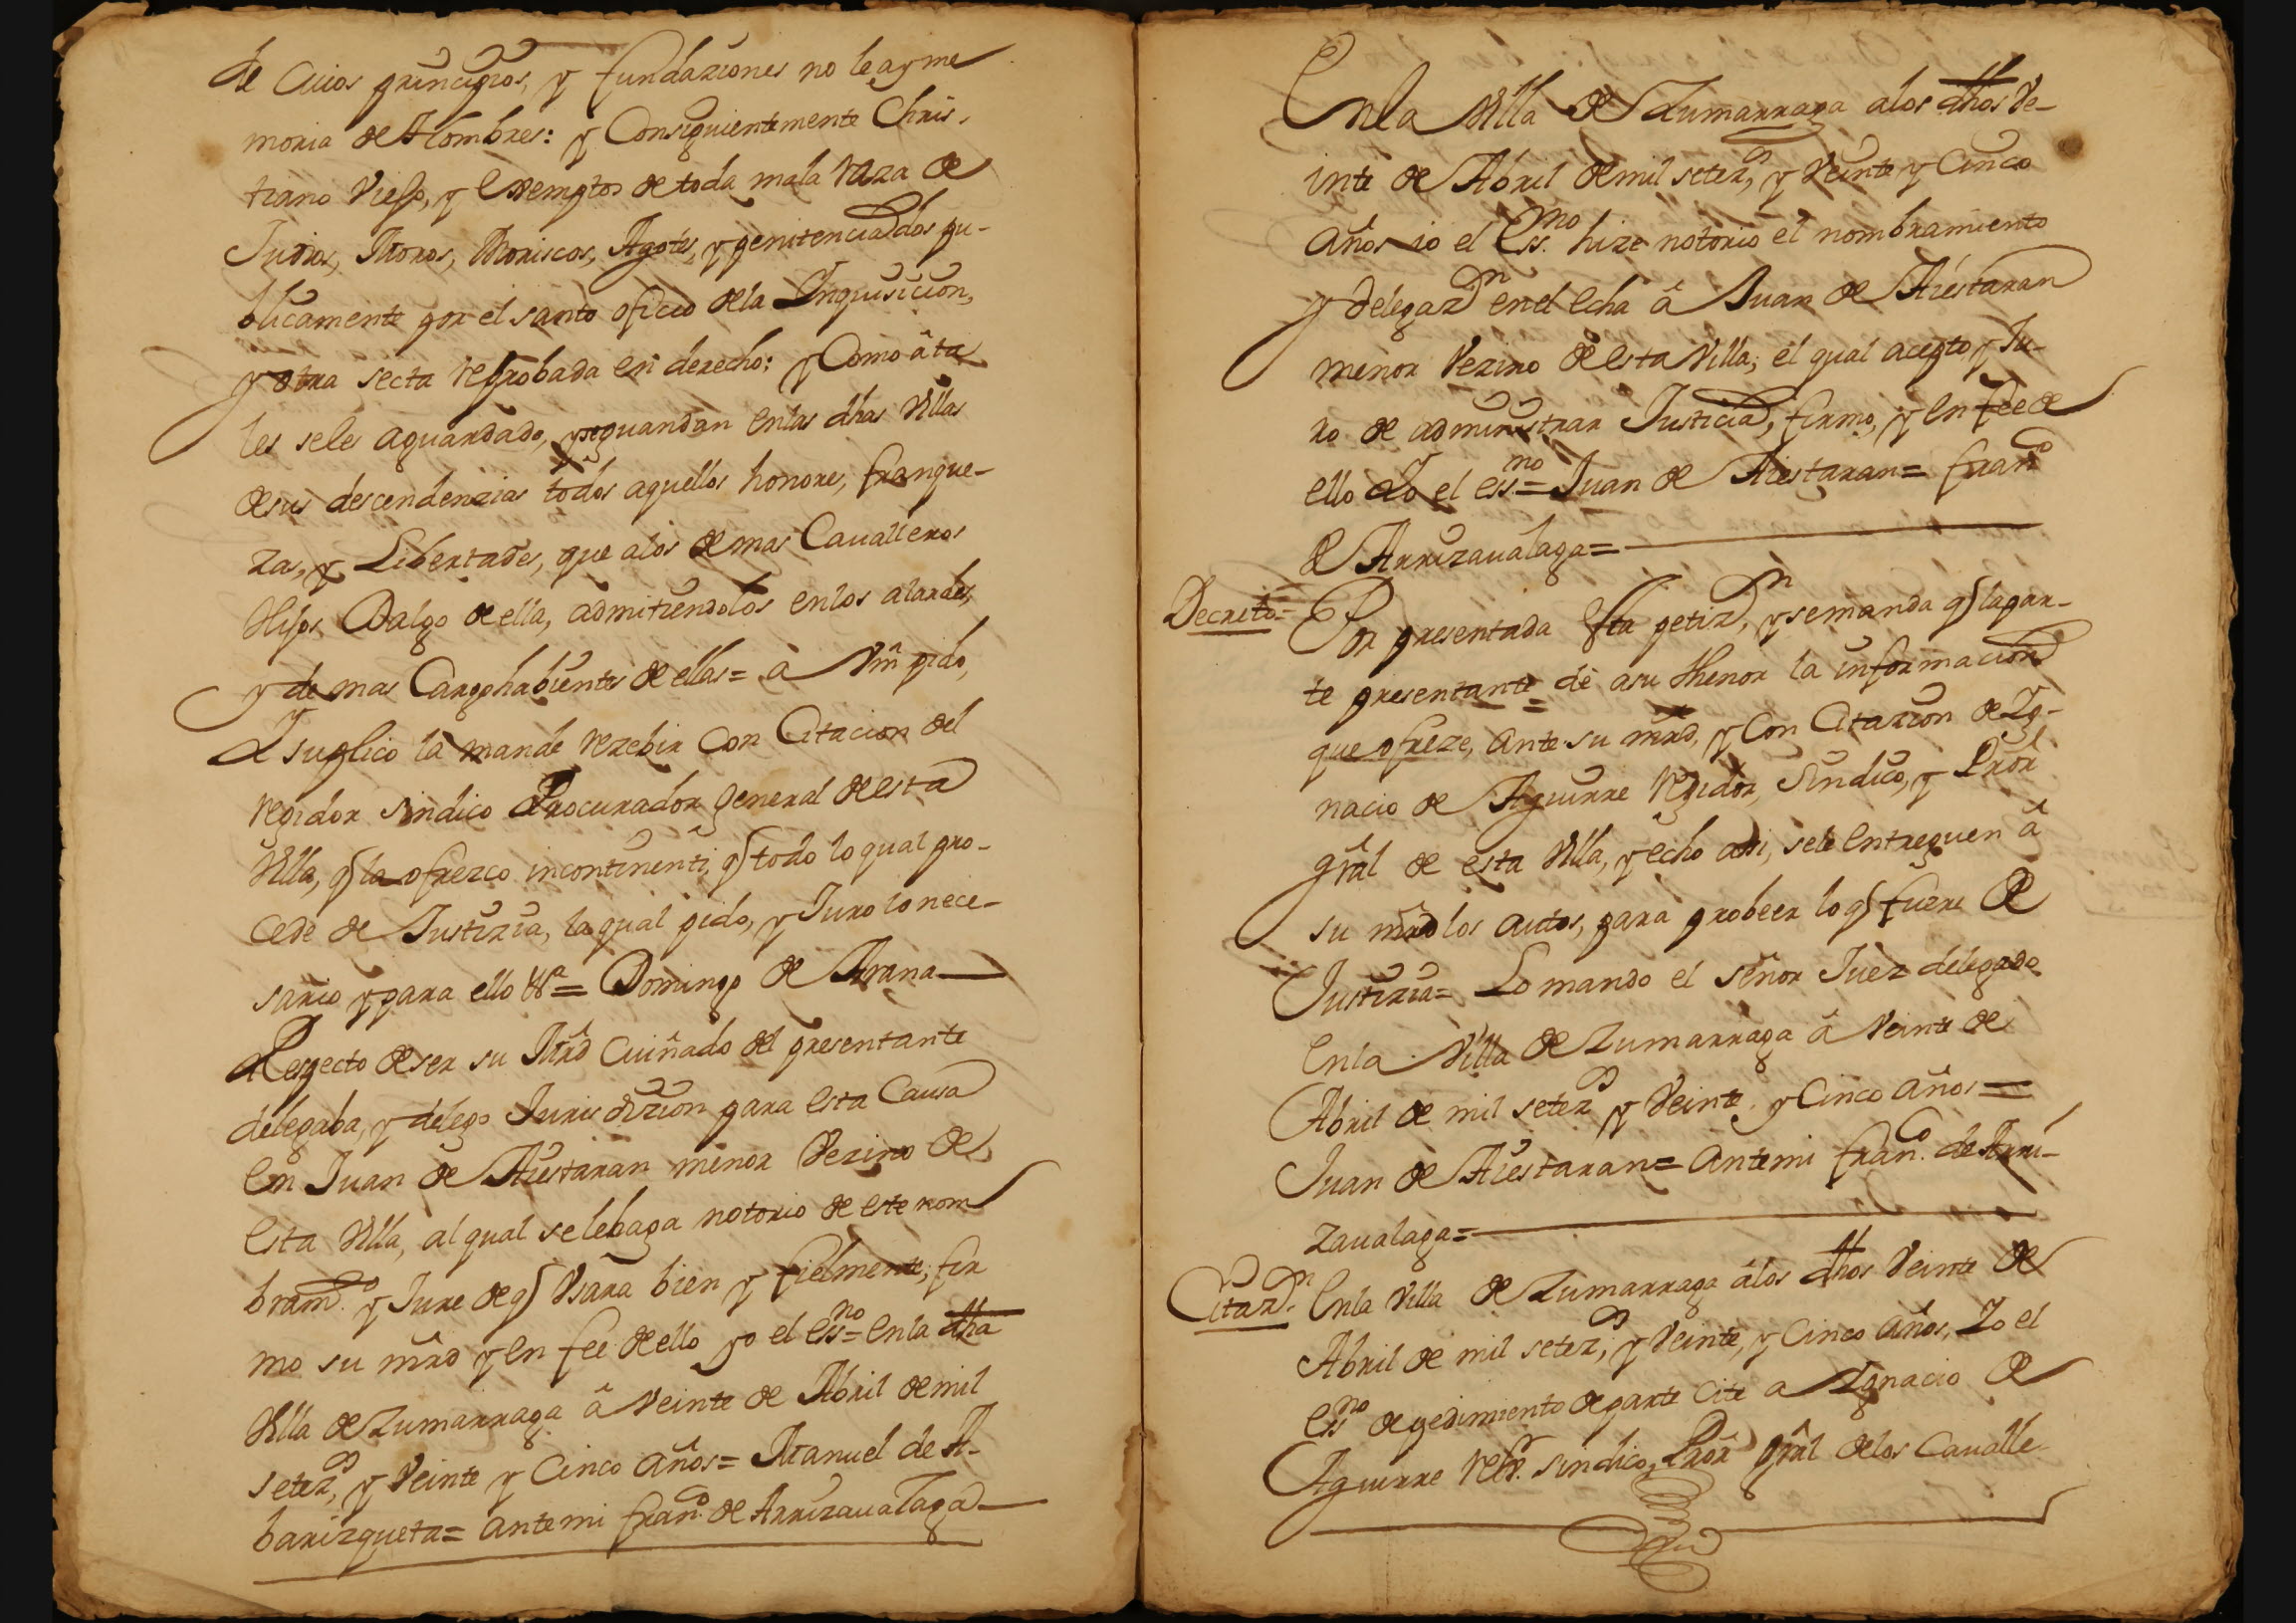 de Cuios principios, y fundaziones no le ay me
moria de Hombres: y Consiguientemente Chris,
tiano Viejos, y Exemptos de toda mala raza de
Judios, Moros, Moriscos, Agotes, y penitenciados pu-
blicamente por el santo oficio dela Inquisicion,
y otra secta reprobada en derecho: y Como â ta
les seles aguardado, y se guardan enlas dhas Villas
desus descendenzias todos aquellos honores, franque-
zas, y Libertades, que alos demas Caualleros
Hijos Dalgo de ella, admitiendolos enlos alardes,
y demas Cargohabientes de ellas= à Vm̃ pido,
Y suplico la mande rezebir Con Citacion del
regidor sindico Procurador general de esta
Villa, q̃ la ofrezco incontinenti, q̃ todo lo qual pro-
cede de Justizia, la qual pido, y Juro lo nece-
sario y para ello &ª= Domingo de Arana
Respecto deser su Mrd Cuiñado del presentante
delegaba, y delego Jurisdizion para esta Causa
En Juan de Aiestaran menor Vezino de
Esta Villa, al qual sele haga notorio de este nom
bramto. y Jure de q̃ Vsara bien y fielmente, fir
mo su mrd y en fee de ello yo el essno= Enla dha
Villa de Zumarraga â Veinte de Abril demil
setezos, y Veinte y Cinco años= Manuel de A-
barizqueta= Antemi Franco. de Arrizaualaga
Enla Villa de Zumarraga alos dhos Ve-
inte de Abril demil setezos, y Veinte y Cinco
años io el Essno. hize notorio el nombramiento
y delegazn en el echa â Juan de Aiestaran
menor Vezino de esta Villa, el qual acepto, y Ju-
ro de administrar Justicia, firmo, y en fee de
ello Yo el essno= Juan de Aiestaran= Franco
de Arrizaualaga=
Decreto= Por presentada esta petizn, y se manda q̃ la par-
te presentante de asu thenor la informacion
que ofreze, ante su mrd, y Con Citazion de Ig-
nacio de Aguirre regidor, Sindico, y Pror
gral de esta Villa, y echo asi, sele entreguen â
su mrd los autos, para probeer lo q̃ fuere de
Justizia= Lo mando el señor Juez delegado
Enla Villa de Zumarraga â Veinte de
Abril de mil setezos y Veinte y Cinco años=
Juan de Aiestaran= Antemi Franco. de Arri-
zaualaga=
Citazn. Enla Villa de Zumarraga âlos dhos Veinte de
Abril de mil setezos, y Veinte, y Cinco años, Yo el
Essno de pedimiento de parte Cite a Ignacio de
Aguirre regor. sindico, Pror gral delos Caualle